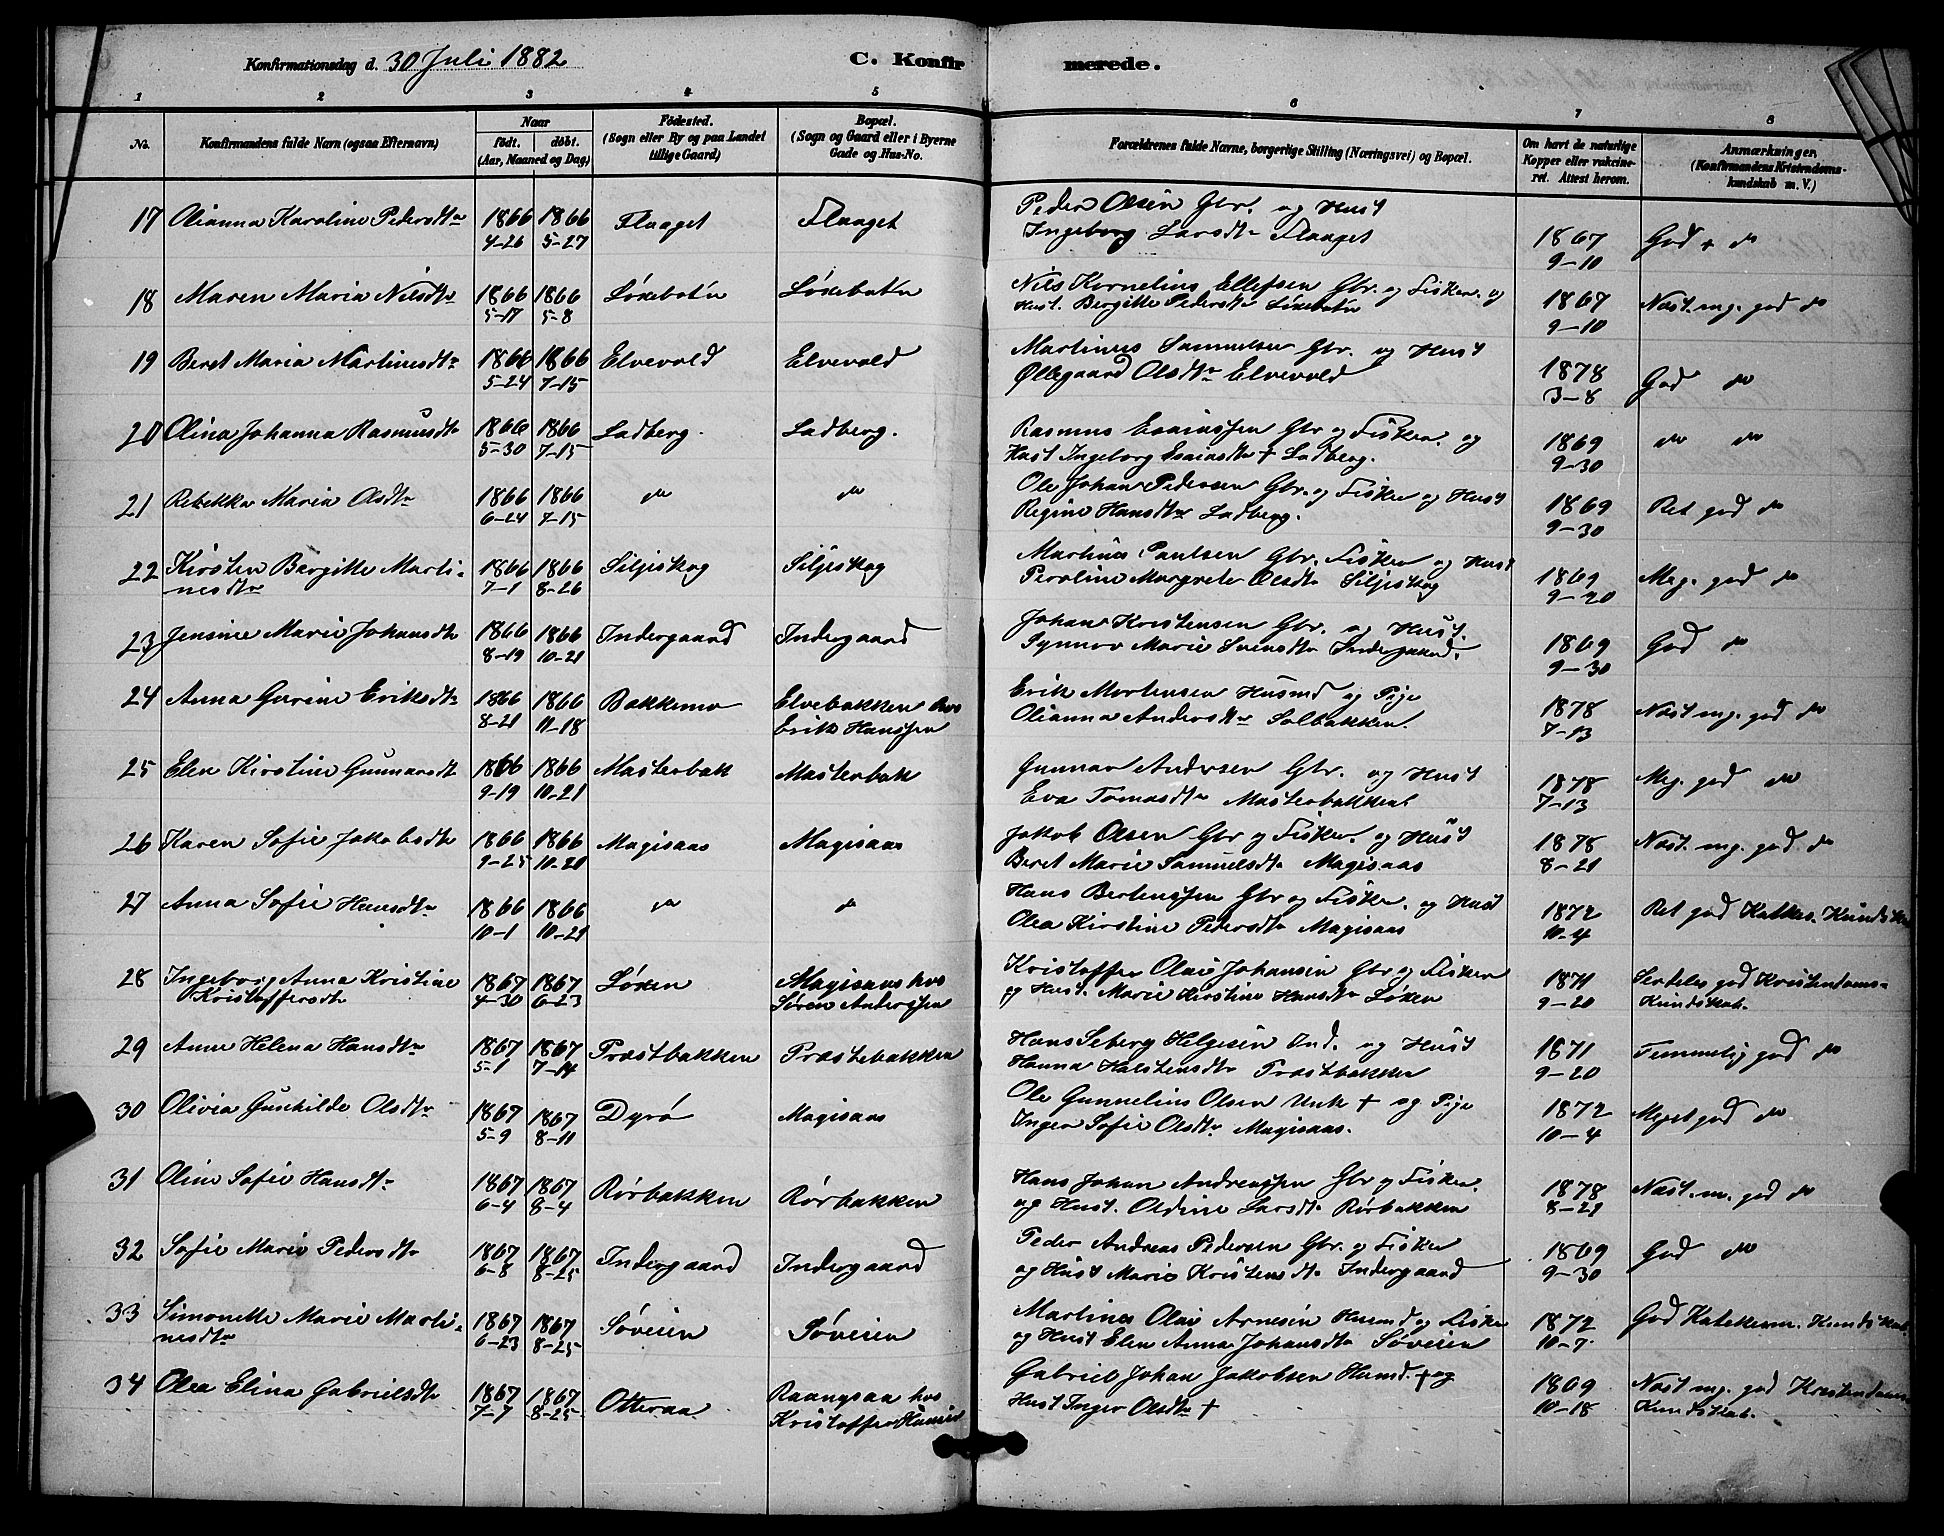 Konfirmationsdag d. 30 Juli 1882
C. Konfirmerede.
1 2 3 4 5 6 7 8
No.
Konfirmandens fulde Navn (ogsaa Efternavn)
Naar
födt. döbt.
(Aar, Maaned og Dag)
Födested.
(Sogn eller By og paa Landet
tillige Gaard)
Bopæl.
(Sogn og Gaard eller i Byerne
Gade og Hus-No.
Forældrenes fulde Navne, borgerlige Stilling (Næringsvei) og Bopæl.
Om havt de naturlige
Kopper eller vaksine-
ret. Attest herom.
Anmærkninger,
(Konfirmandens Kristendoms-
kundskab m. V.)
17 Olianna Karoline Pedersdtr 1866 1866 Flaaget Flaaget Peder Olsen Gbr. og Hust
4-26 5-27 Ingeborg Larsdtr Flaaget 1867 God
9-10
18 Maren Maria Nilsdtr 1866 1866 Löxebotn Löxebotn Nils Kornelius Ellefsen Gbr. og Fisker. og
5-17 5-8 Hust. Bergitte Pedersdtr Löxebotn 1867 Næst. mg. god do
9-10
19 Beret Maria Martinusdtr 1866 1866 Elvevold Elvevold Martinus Samuelsen Gbr. og Hust
5-24 7-15 Øllegaard Olsdtr Elvevold 1878 God do
3-8
20 Olina Johanna Rasmusdtr 1866 1866 Ladberg. Ladberg. Rasmus Esaiassen Gbr og Fisker. og
5-30 7-15 Hust Ingeborg Esaiasdtr + Ladberg. 1869 do do
9-30
21 Rebekka Maria Olsdtr 1866 1866 do do Ole Johan Pedersen Gbr. og Fisker og Hust
6-24 7-15 Regine Hansdtr Ladberg. 1869 Ret god do
9-30
22 Kirsten Bergitte Marti- 1866 1866 Siljeskog Siljeskog Martinus Paulsen Gbr. Fisker og Hust
nesdtr 7-1 8-26 Peroline Margrete Olsdtr Siljeskog 1869 Meg. god do
9-20
23 Jensine Marie Johansdtr 1866 1866 Indergaard Indergaard Johan Kristensen Gbr. og Hust.
8-19 10-21 Synnov Marie Svensdtr Indergaard. 1869 God do
9-30
24 Anna Gurine Eriksdtr 1866 1866 Bakkemo Elvebakken hos Erik Mortensen Husmd og Pige
8-21 11-18 Erik Hanssen Olianna Andersdtr Solbakken. 1878 Næst mg. god do
7-13
25 Elen Kirstine Gunnarsdt 1866 1866 Masterbak Masterbak Gunnar Andersen Gbr. og Hust
9-19 10-21 Eva Tomasdtr Masterbakken 1878 Meg. god do
7-13
26 Karen Sofie Jakobsdtr 1866 1866 Magisaas Magisaas Jakob Olsen Gbr og Fisker. og Hust 1878 Næst. mg. god. do
9-25 10-21 Beret Marie Samuelsdtr Magisaas 8-21
27 Anna Sofie Hansdtr 1866 1866 do do Hans Berlenssen Gbr og Fisker. og Hust
10-1 10-21 Olea Kirstine Pedersdtr Magisaas 1872
10-4
28 Ingeborg Anna Kristine 1867 1867 Löxen Magisaas hos Kristoffer Olai Johansen Gbr og Fisker 1871
Kristoffersdtr 4-30 6-23 Sören Anderssen og Hust. Marie Kirstine Hansdtr Löxen 9-20 Kundskab.
29 Anne Helena Hansdtr 1867 1867 Præstbakken Præstebakken Hans Seberg Helgesen Ind. og Hust 1871 Temmelig god do
5-1 7-14 Hanna Halstensdtr Præstbakken 9-20
30 Olivia Gunhilde Olsdtr 1867 1867 Dyrö Magisaas Ole Gunnelius Olsen Unk + og Pige 1872 Meget god do
5-9 8-11 Inger Sofie Olsdtr Magisaas. 10-4
31 Oline Sofie Hansdtr 1867 1867 Rörbakken Rörbakken Hans Johan Andreassen Gbr og Fisker. 1878 Næst. m. god do
6-4 8-4 og Hust. Oldine Larsdtr Rörbakken 8-21
32 Sofie Marie Pedersdtr 1867 1867 Indergaard Indergaard Peder Andreas Pedersen Gbr. og Fisker 1869 God do
6-8 8-25 og Hust Marie Kristensdtr Indergaard 9-30
33 Simonette Marie Marti- 1867 1867 Söveien Söveien Martines Olai Arnesen Husmd og Fisker 1872 God Katekism. Kundskab.
nesdtr 6-23 8-25 og Hust Elen Anna Johansdtr Söveien 10-7
34 Olea Elina Gabrielsdtr 1867 1867 Otteraa. hos Gabriel Johan Jakobsen Husmd. + og 1869 Næst mg. god Kristendoms
7-7 8-25 Kristoffer Hust Inger Olsdtr + 10-18 Kundskab.